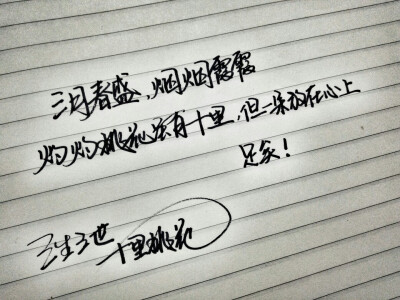 三月春盛,烟烟霞霞
灼灼桃花虽有十里,但一朵放在心上
足矣!
三生三世
十里桃花